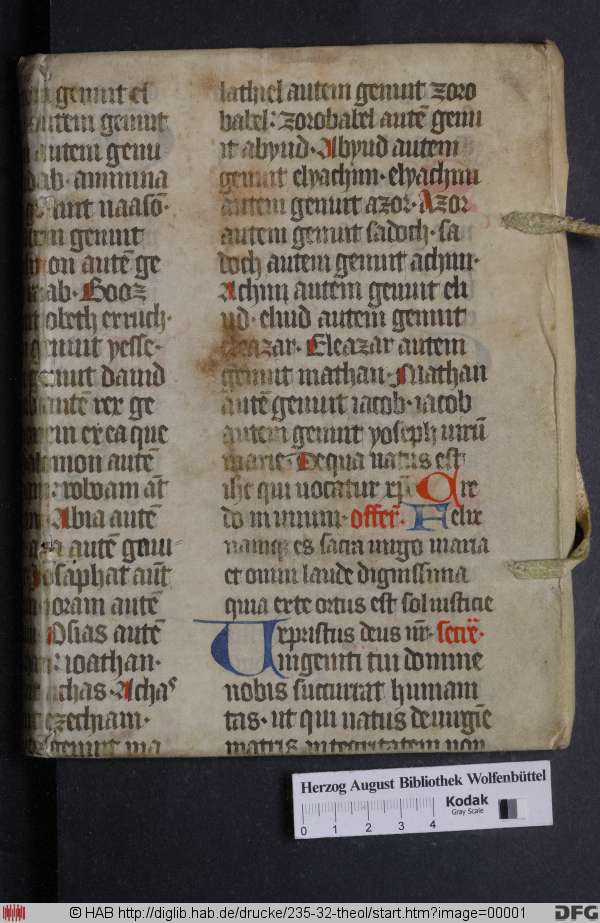 genuit el
autem genuit
autem genu
dab · ammina
genuit naasō ·
tem genuit
mon autē ge
ab · Booz
oleth erruch ·
genuit yesse ·
genuit dauid
autē rex ge
em ex ea que
lomon autē
roboam aūt
Abia autē
autē genu
osaphat aūt
joram autē
Osias autē
ioathan ·
achas · Achas
ezechiam ·
genuit ma
lathiel autem genuit zoro
babel · zorobabel autē genu
it abyud · Abyud autem
genuit elyachim · elyachim
autem genuit azor · Azor
autem genuit sadoch · sa
doch autem genuit achim ·
Achim autem genuit eli
ud · eliud autem genuit
eleazar · Eleazar autem
genuit mathan · Mathan
autē genuit iacob · iacob
autem genuit yoseph uirū
marie · De qua natus est
ihc qui uocatur xp̄c · Cre
do in unum · offerē · Felix
namque es sacra uirgo maria
et omni laude dignissima
quia ex te ortus est sol iusticie
xpristus deus nr̄ · secrē ·
Unigeniti tui domine
nobis succurrat humani
tas · ut qui natus de uirgīe
matris integritatem non
Herzog August Bibliothek Wolfenbüttel
0 1 2 3 4
Kodak
Gray Scale
© HAB http://diglib.hab.de/drucke/235-32-theol/start.htm?image=00001
DFG